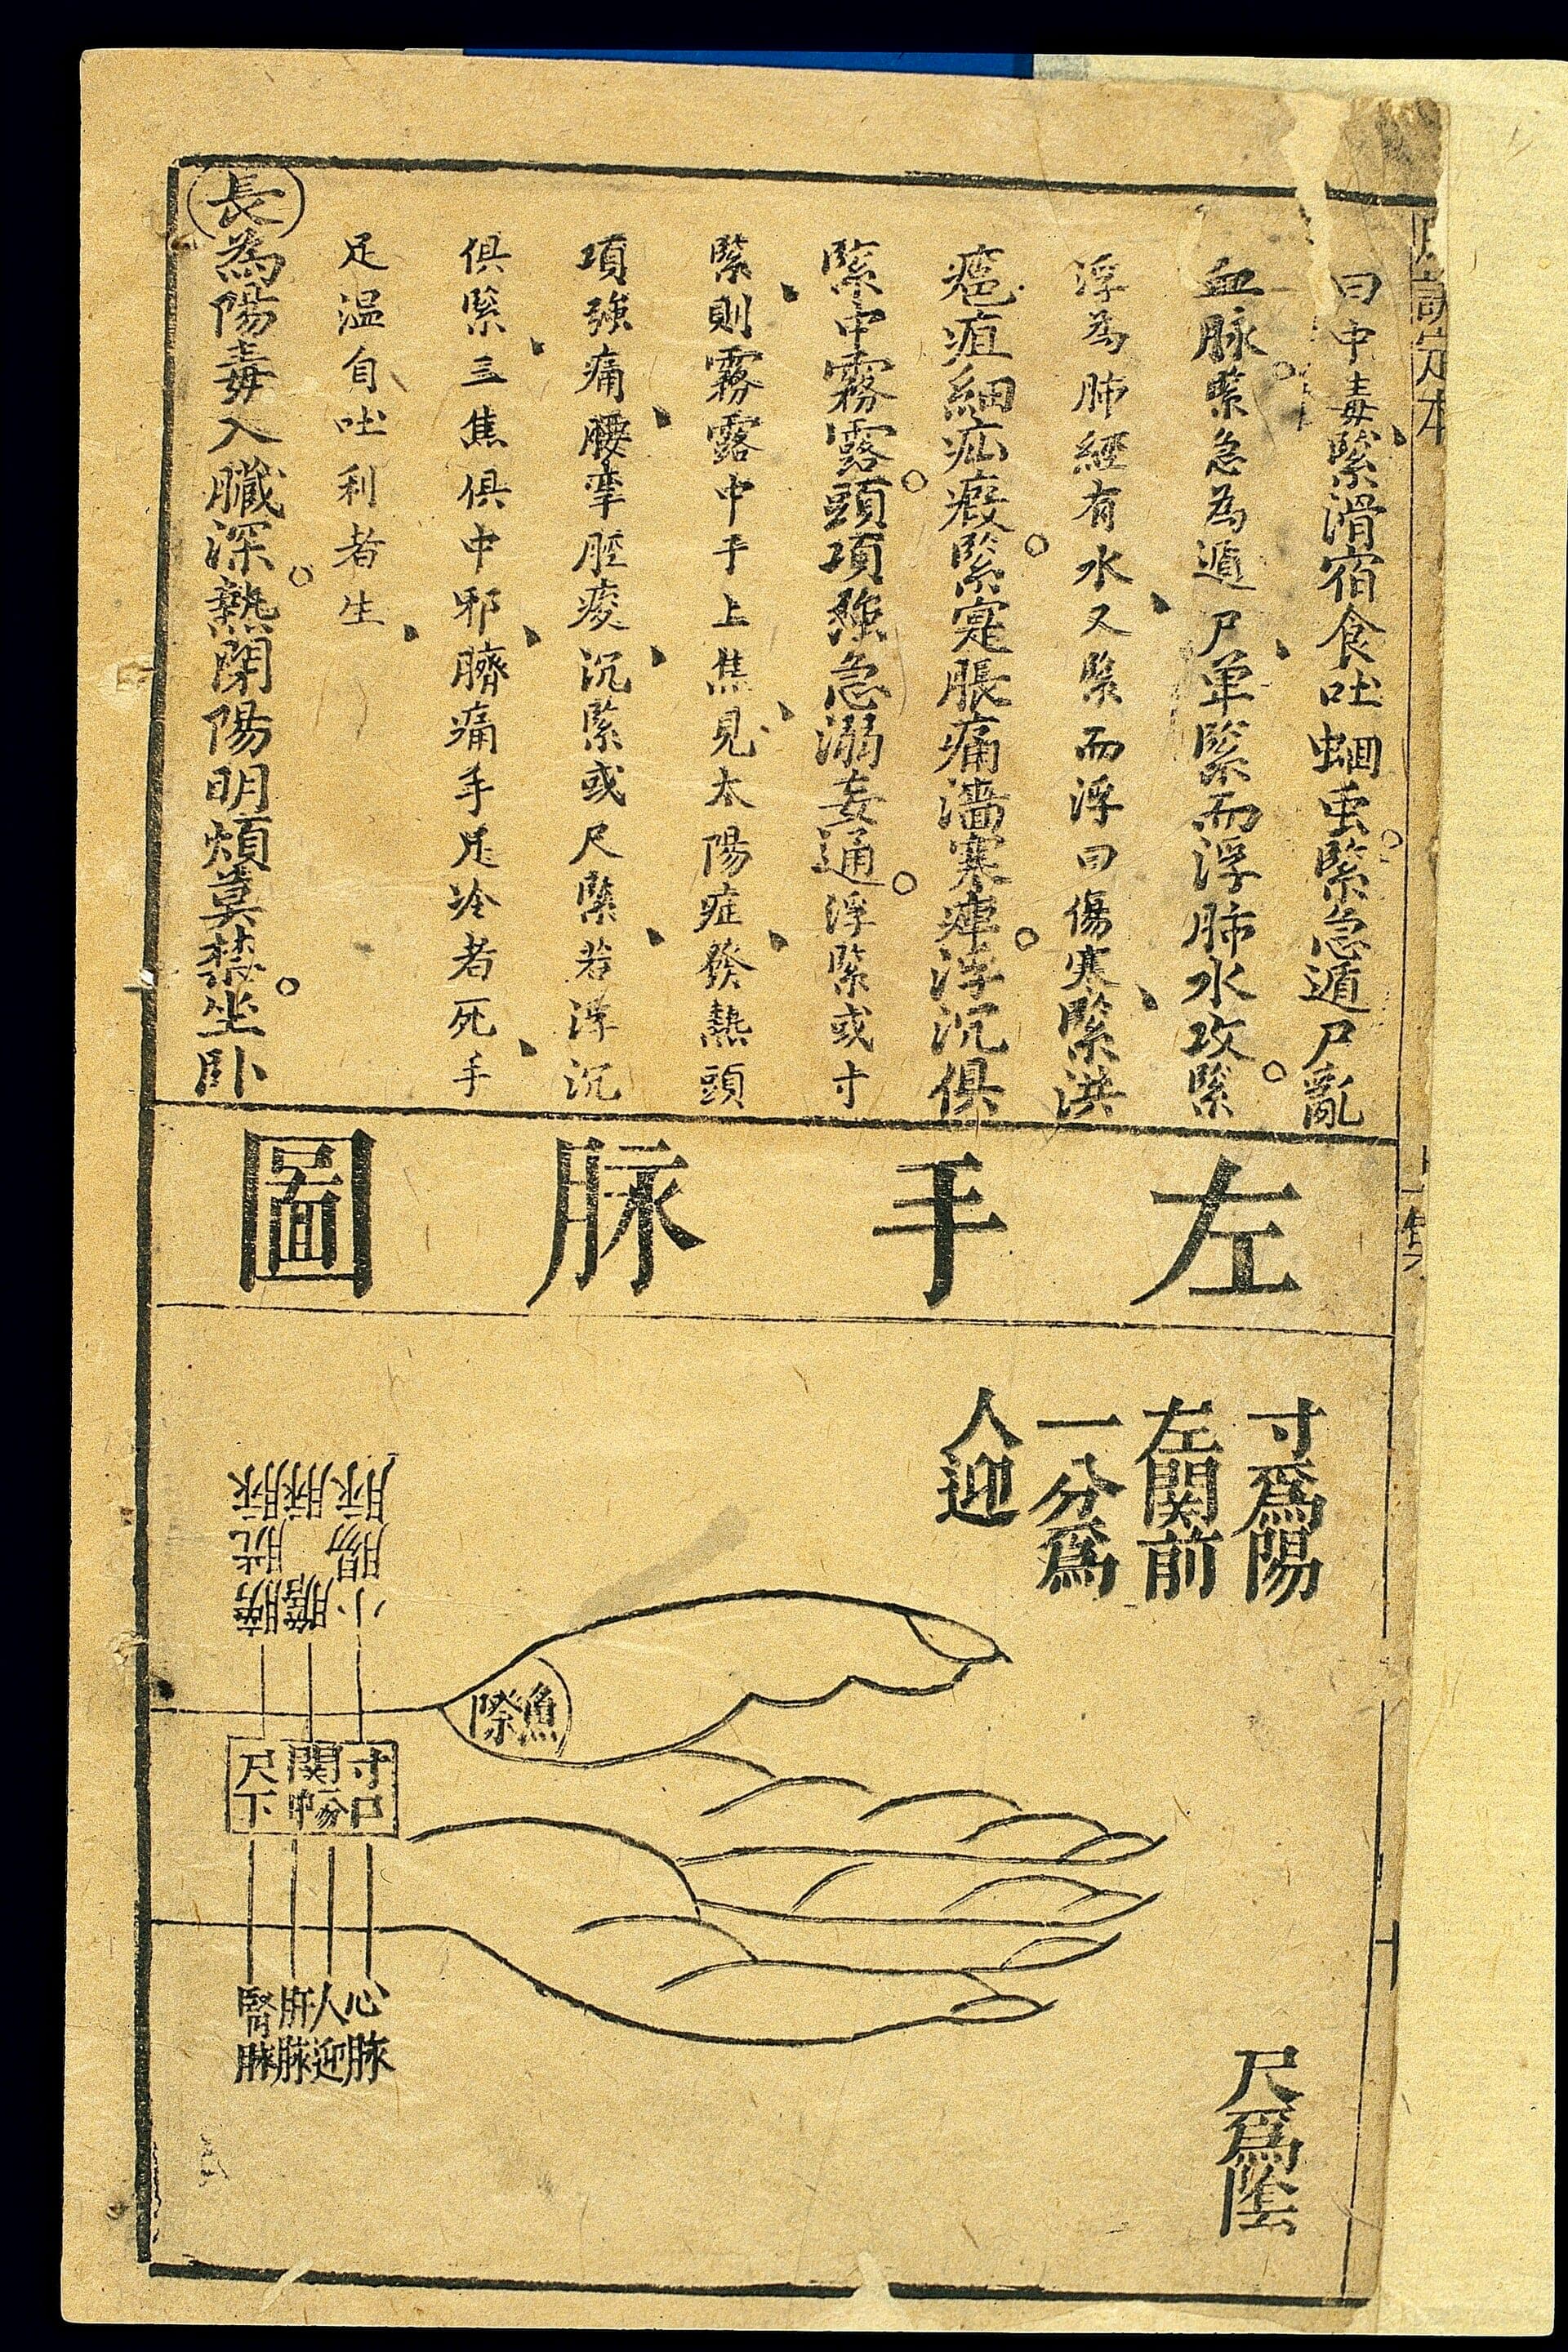 曰中毒緊滑宿食吐蛔虫緊急遁尸亂
血脉緊急為遁尸単緊而浮肺水攻緊
浮為肺經有水又緊而浮曰傷寒緊洪
瘡疽細疝瘕緊寔脹痛濇寒痺浮沉俱
緊中霧露頭項強急溺妄通浮緊或寸
緊則霧露中乎上焦見太陽症發熱頭
項強痛腰攣脛痠沉緊或尺緊若浮沉
俱緊三焦俱中邪臍痛手足冷者死手
足温自吐利者生
長為陽毒入臟深熱閉陽明煩莫禁坐卧
左手脉圖
寸爲陽
左関前
一分爲
人迎
小腸脉
膽脉
膀胱脉
魚際
寸口
関部分中
尺下
心脉
人迎
肝脉
腎脉
尺爲陰